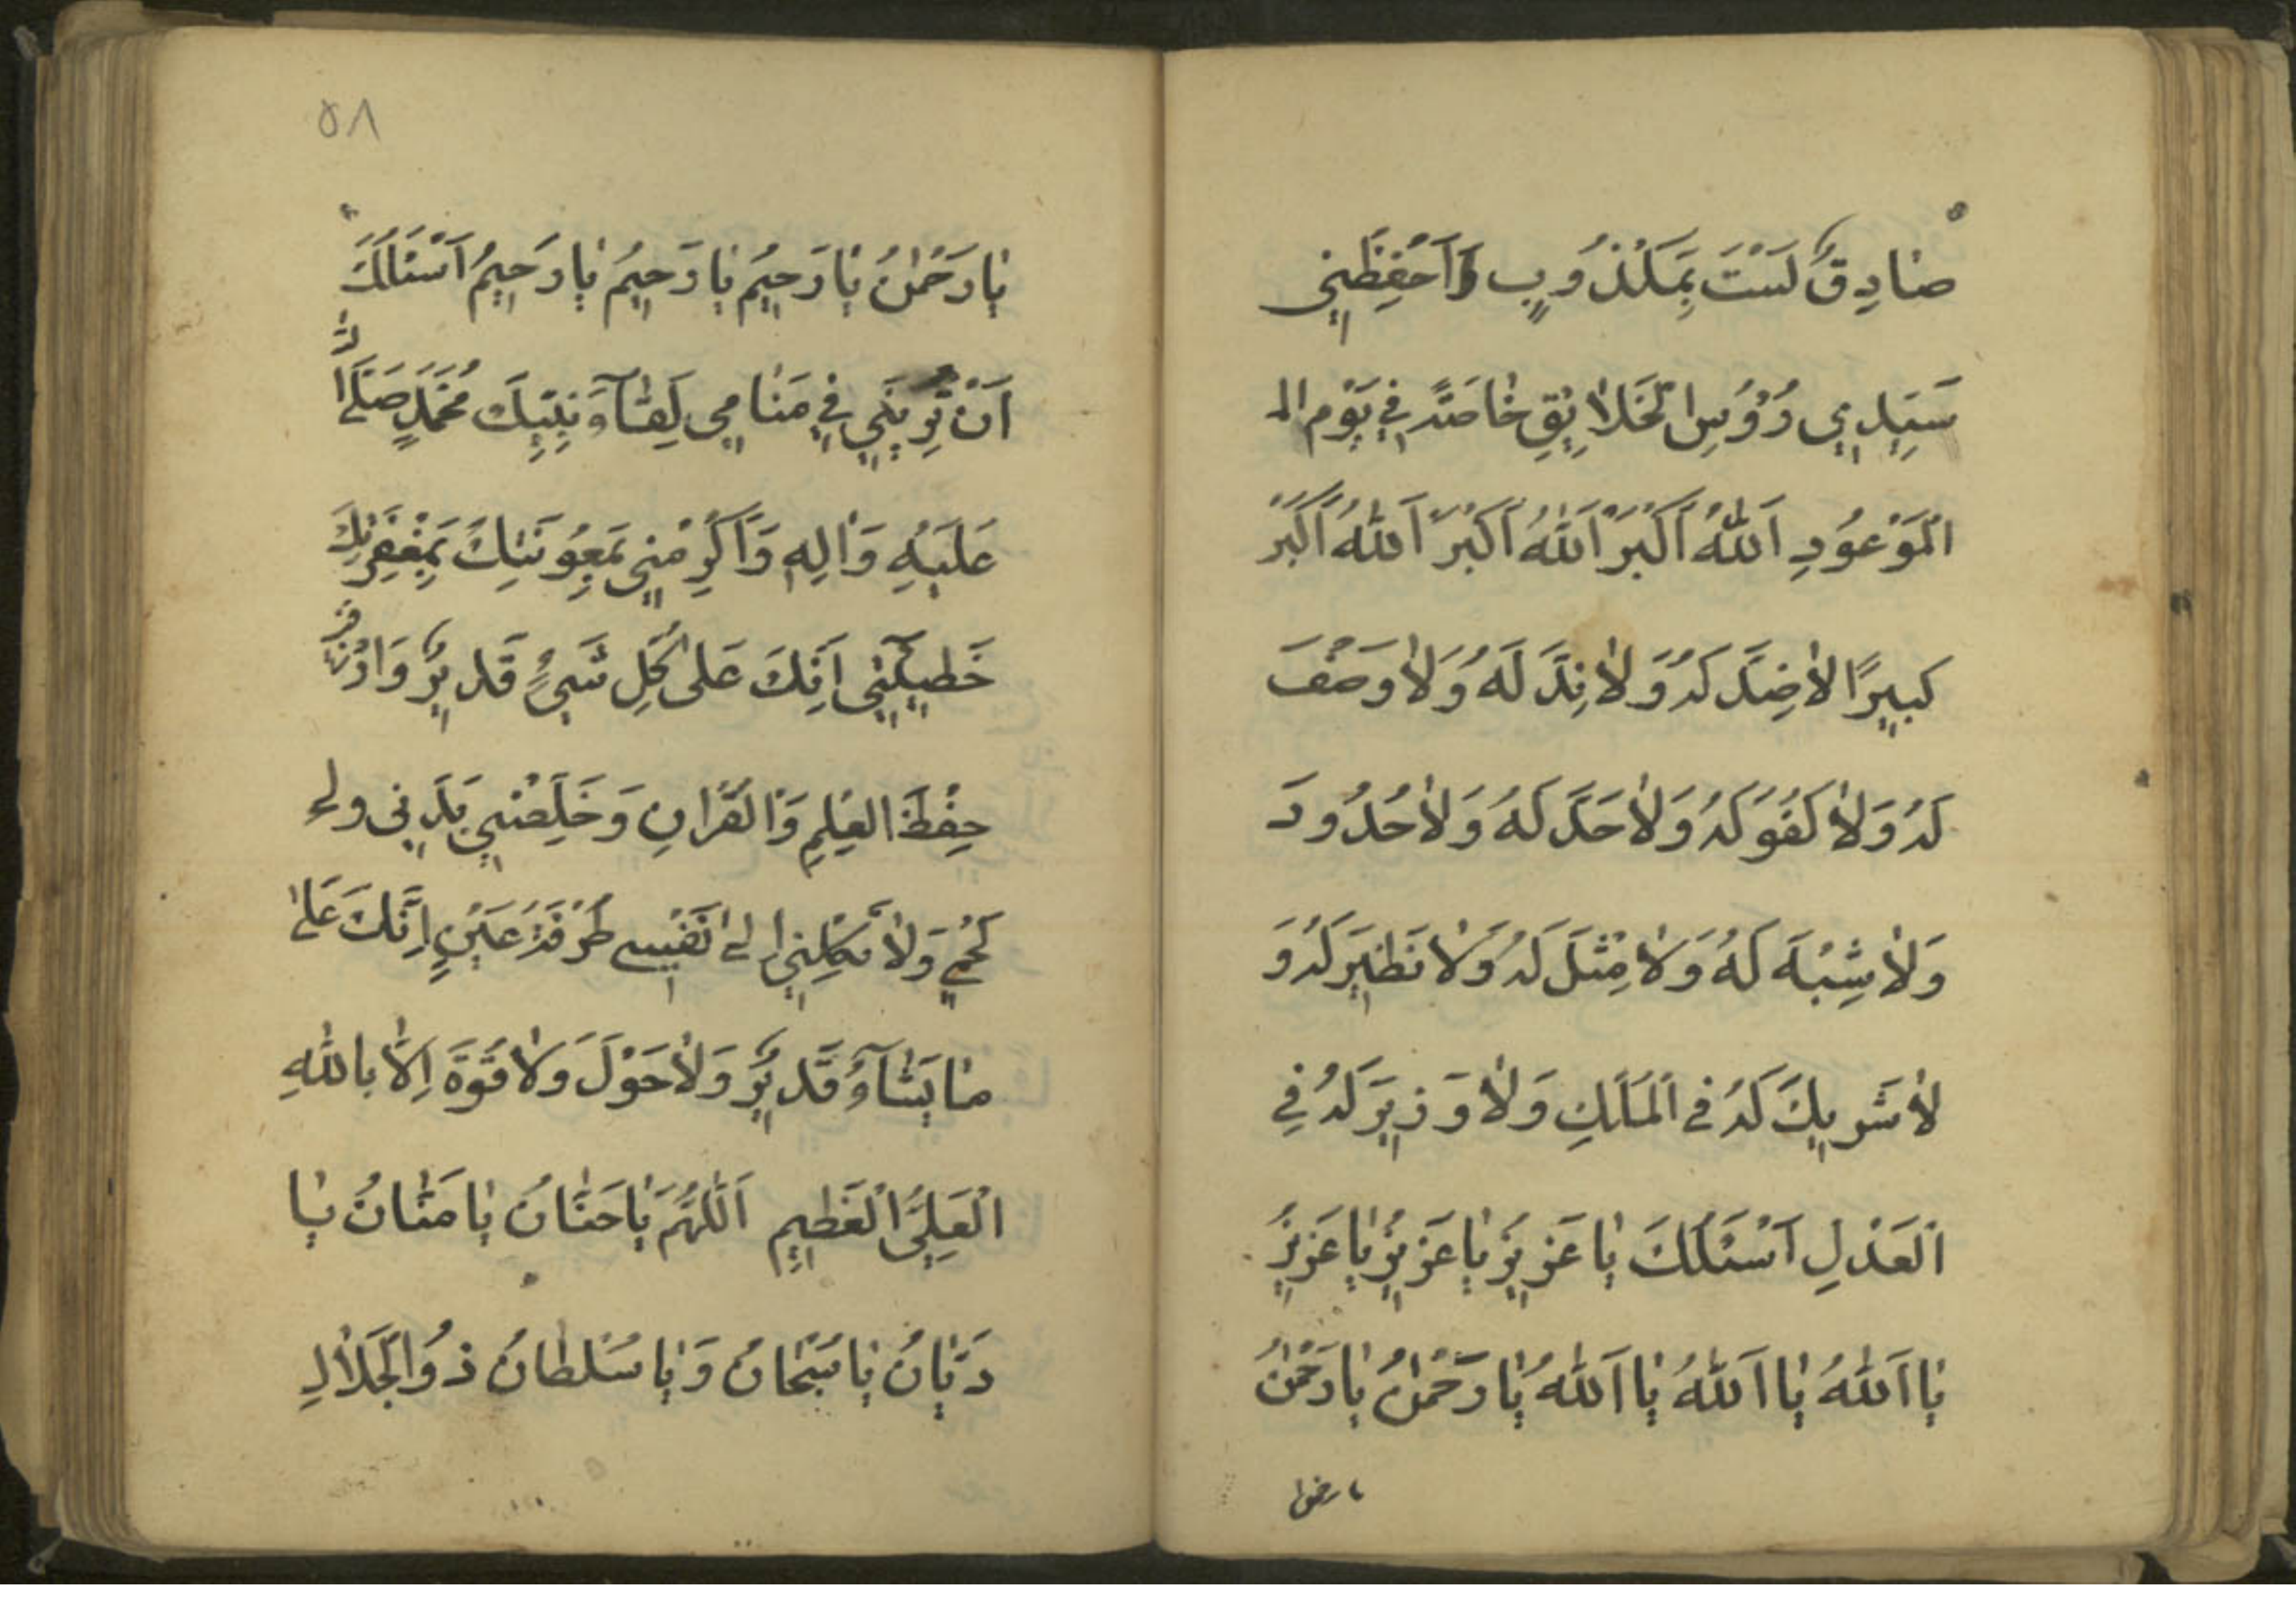 صٰادِقٌ لَسْتَ بِمَكْذُوبٍ وَاَحْفِظْنِي
سَيِّدِي رُؤُسِ الْخَلاٰيِقِ خٰاصَّةً فِي يَوْمِ الـ
الْمَوْعُودِ اَللّٰهُ اَكْبَرُ اَللّٰهُ اَكْبَرُ اَللّٰهُ اَكْبَرُ
كَبِيرًا لاٰ ضِدَّ لَهُ وَلاٰ نِدَّ لَهُ وَلاٰ وَصْفَ
لَهُ وَلاٰ كُفُوَ لَهُ وَلاٰ حَدَّ لَهُ وَلاٰ حُدُودَ
وَلاٰ شِبْهَ لَهُ وَلاٰ مِثْلَ لَهُ وَلاٰ نَظِيرَ لَهُ وَ
لاٰ شَرِيكَ لَهُ فِي الْمُلْكِ وَلاٰ وَزِيرَ لَهُ فِي
الْعَدْلِ اَسْئَلُكَ يٰا عَزِيزُ يٰا عَزِيزُ يٰا عَزِيزُ
يٰا اَللّٰهُ يٰا اَللّٰهُ يٰا اَللّٰهُ يٰا رَحْمٰنُ يٰا رَحْمٰنُ
يا رحمن
٥٨
يٰا رَحْمٰنُ يٰا رَحِيمُ يٰا رَحِيمُ يٰا رَحِيمُ اَسْئَلُكَ
اَنْ تُرِيَنِي فِي مَنٰامِي لِقٰآءَ نَبِيِّكَ مُحَمَّدٍ صَلَّى اللّٰهُ
عَلَيْهِ وَاٰلِهِ وَاَكْرِمْنِي بِمَعُونَتِكَ بِمَغْفِرَتِكَ
خَطِيئَتِي اِنَّكَ عَلىٰ كُلِّ شَيْءٍ قَدِيرٌ وَارْزُقْنِي
حِفْظَ الْعِلْمِ وَالْقُرْاٰنِ وَخَلِّصْنِي بَدَنِي وَ
لَحْمِي وَلاٰ تَكِلْنِي اِلىٰ نَفْسِي طَرْفَةَ عَيْنٍ اِنَّكَ عَلىٰ
مٰا يَشٰآءُ قَدِيرٌ وَلاٰ حَوْلَ وَلاٰ قُوَّةَ اِلاّٰ بِاللّٰهِ
الْعَلِيِّ الْعَظِيمِ اَللّٰهُمَّ يٰا حَنّٰانُ يٰا مَنّٰانُ يٰا
دَيّٰانُ يٰا سُبْحٰانُ وَيٰا سُلْطٰانُ ذُو الْجَلاٰلِ